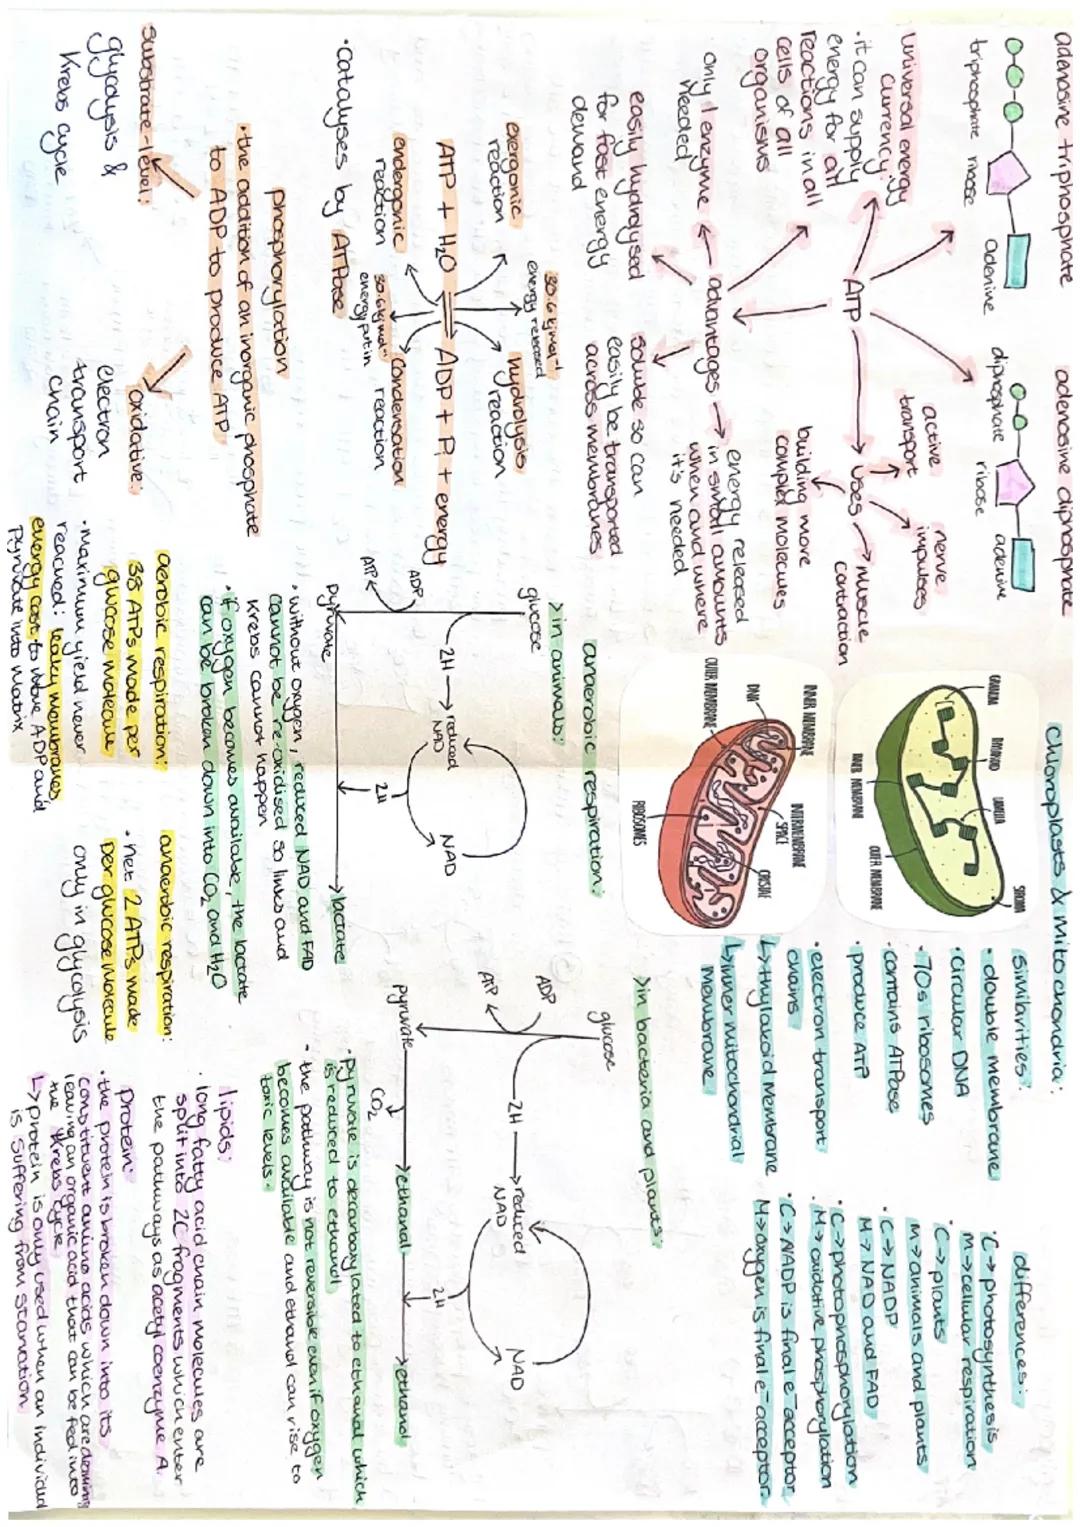 adenosine triphosphate
triphosphate ribose
adenine
adenosine diphosphate
diphosphate
ribose
adenine
universal energy
currency:
• it can supply
energy for all
reactions in all
cells of all
organisms
ATP
uses
active
transport
nerve
impulses
muscle
contraction
building more
complex molecules
advantages
only 1 enzyme
needed
easily hydrolysed
for fast energy
demand
soluble so can
easily be transported
across membranes
energy released
in small amounts
when and where
it's needed
exergonic
reaction
30.6 kjmol⁻¹
energy released
hydrolysis
reaction
ATP + H₂O ⇌ ADP + Pi + energy
endergonic
reaction
30.6kjmol⁻¹
energy put in
condensation
reaction
• catalyses by ATPase
phosphorylation
• the addition of an inorganic phosphate
to ADP to produce ATP
substrate-level:
glycolysis &
Krebs cycle
oxidative:
electron
transport
chain
chloroplasts & mitochondria:
GRANUM
THYLAKOID
LAMELLA
STROMA
INNER MEMBRANE
OUTER MEMBRANE
INNER MEMBRANE
DNA
OUTER MEMBRANE
INTERMEMBRANE
SPACE
CRISTAE
RIBOSOMES
similarities:
• double membrane
• circular DNA
• 70s ribosomes
• contains ATPase
• produce ATP
• electron transport
chains
↳ thylakoid membrane
↳ inner mitochondrial
membrane
differences:
• C→ photosynthesis
M→ cellular respiration
• C→ plants
M→ animals and plants
• C→ NADP
M→ NAD and FAD
• C→ photophosphorylation
M→ oxidative phosphorylation
• C→ NADP is final e⁻ acceptor
M→ oxygen is final e⁻ acceptor
anaerobic respiration:
> in animals:
glucose
ADP
ATP
2H → reduced
NAD
NAD
2H
pyruvate
lactate
• without oxygen, reduced NAD and FAD
cannot be re-oxidised so links and
Krebs cannot happen
• if oxygen becomes available, the lactate
can be broken down into CO₂ and H₂O
> in bacteria and plants:
glucose
ADP
ATP
2H → reduced
NAD
NAD
2H
pyruvate
CO₂
ethanal
ethanol
• pyruvate is decarboxylated to ethanal which
is reduced to ethanol
• the pathway is not reversible even if oxygen
becomes available and ethanol can rise to
toxic levels.
aerobic respiration:
38 ATPs made per
glucose molecule
• maximum yield never
reached: leaky membranes,
energy cost to move ADP and
pyruvate into matrix
anaerobic respiration:
• net 2 ATPs made
per glucose molecule
only in glycolysis
lipids:
• long fatty acid chain molecules are
split into 2C fragments which enter
the pathways as acetyl coenzyme A.
protein:
• the protein is broken down into its
constituent amino acids which are
leaving an organic acid that can be fed into
the Krebs cycle
↳ protein is only used when an individual
is suffering from starvation